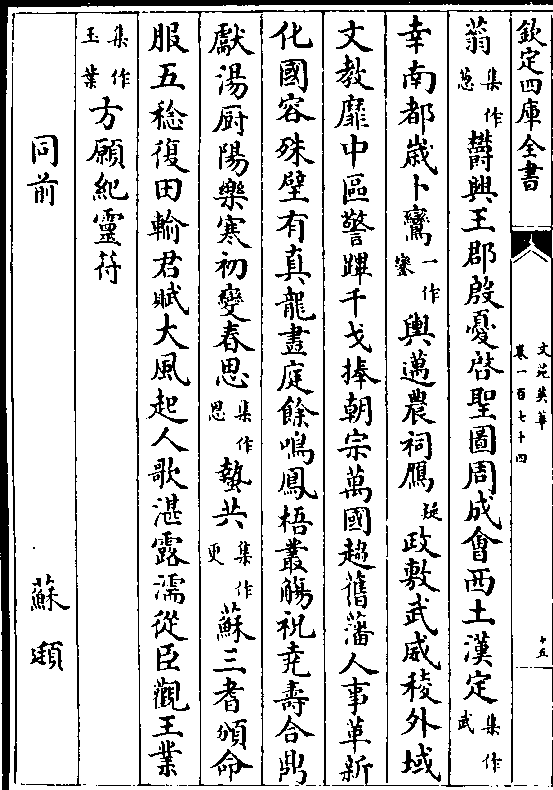 欽定四庫全書
文苑英華
卷一百七十四
十五
蓊集作葱鬱興王郡殷憂啓聖圖周成會西土漢定集作武
幸南都嵗卜鸞一作㝮輿邁農祠鴈疑政敷武威稜外域
文教靡中區警蹕千戈捧朝宗萬國趨舊藩人事革新
化國容殊壁有真龍畫庭餘鳴鳳梧叢觴祝堯壽合鼎
獻湯厨陽樂寒初變春思集作恩蟄共集作更蘇三耆頒命
服五稔復田輸君賦大風起人歌湛露濡從臣觀王業
集作玉葉方願紀靈符
同前
蘇頲